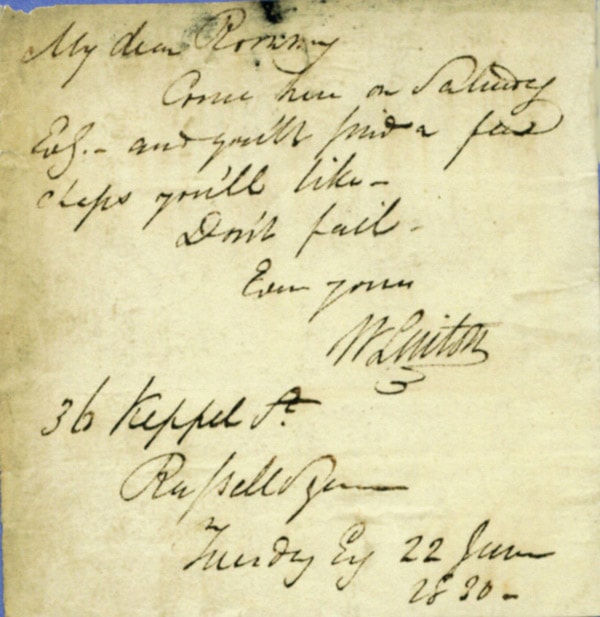 My dear Rooney
Come here on Saturday
Evg. - and you'll find a few
chaps you'll like -
Don't fail -
Ever yours
W Linton
36 Keppel St.
Russell Square
Tuesday Evg 22 June
1830 -